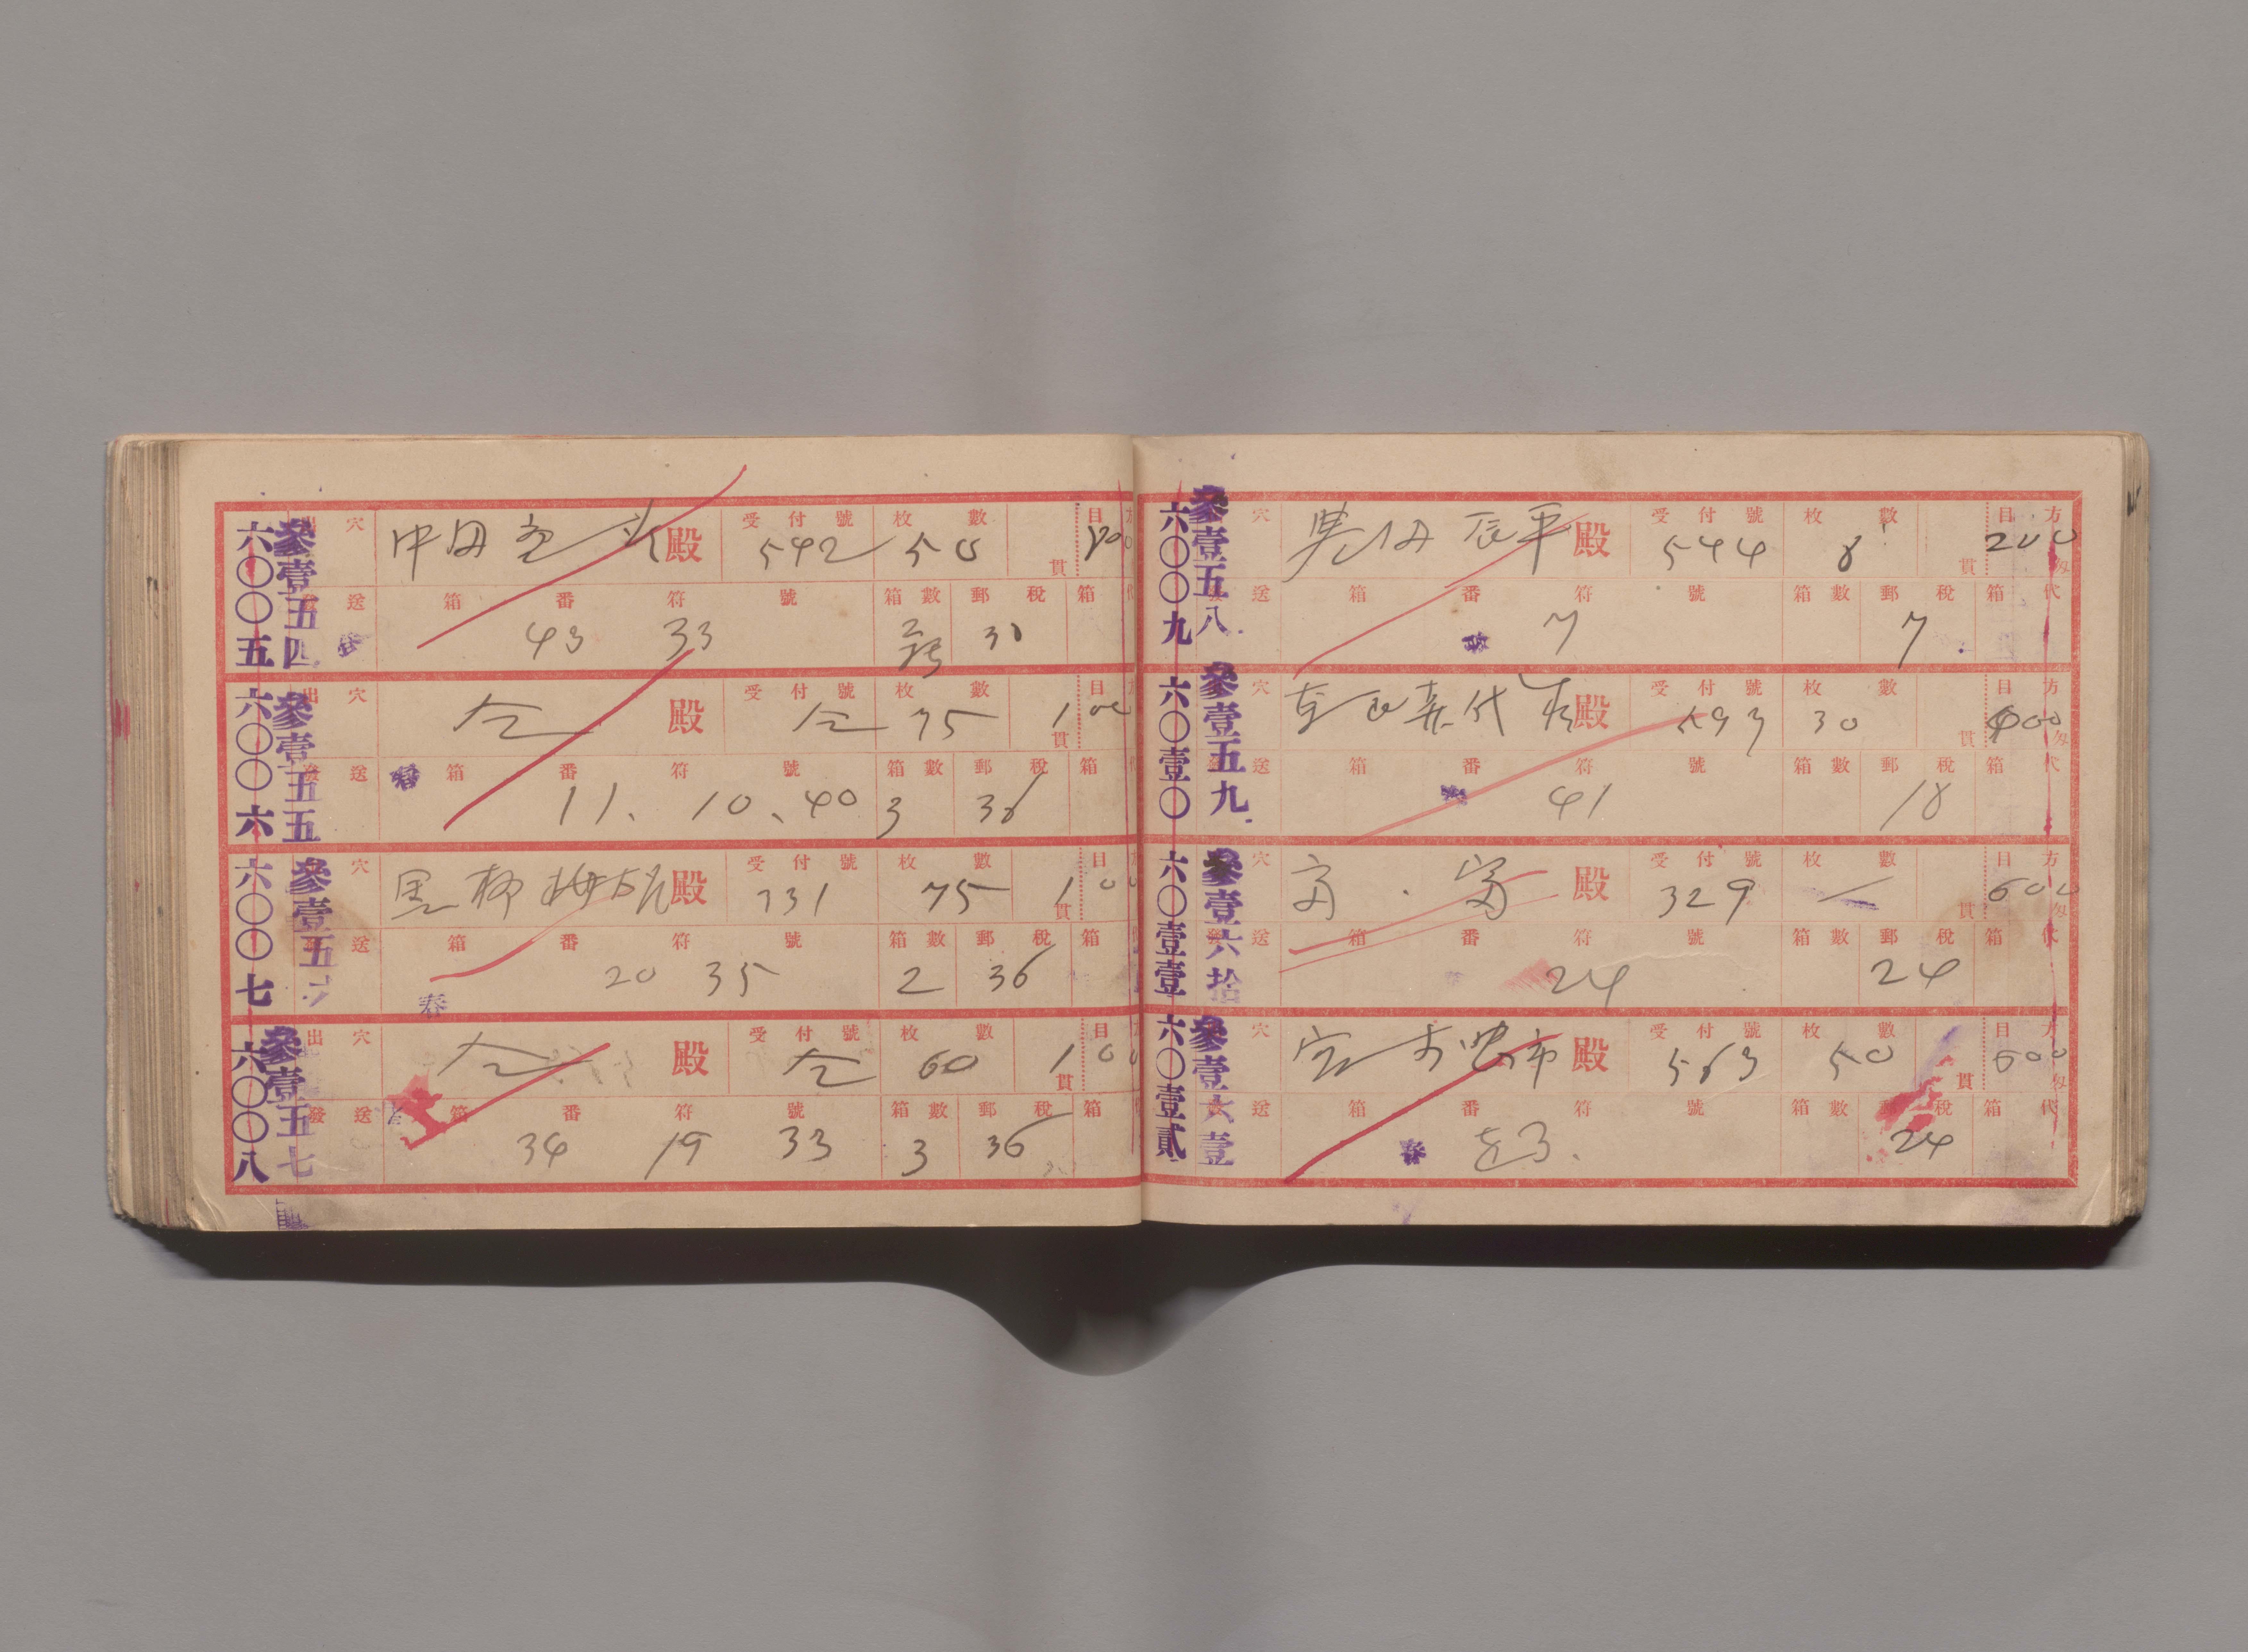 六〇〇五 參壹五四
出 穴 中田 殿 受付號 542 枚數 50 貫 目
發 送 箱 番 符 號 43 33 箱數 郵稅 30 箱
六〇〇六 參壹五五
出 穴 仝 殿 受付號 仝 枚數 75 1 貫 目 00
發 送 春 箱 番 符 號 11、10、40 箱數 3 郵稅 36 箱
六〇〇七 參壹五六
穴 黒柳 殿 受付號 731 枚數 75 1 貫 目 00
送 春 箱 番 符 號 20 35 箱數 2 郵稅 36 箱
六〇〇八 參壹五七
出 穴 仝 殿 受付號 仝 枚數 60 1 貫 目 00
發 送 箱 番 符 號 34 19 33 箱數 3 郵稅 36 箱
六〇〇九 參壹五八
穴 辰平 殿 受付號 544 枚數 8 貫 目方 200 匁
送 箱 番 符 號 春 7 箱數 郵稅 7 箱代
六〇壹〇 參壹五九
穴 殿 受付號 593 枚數 30 貫 目方 400 匁
送 箱 番 符 號 41 箱數 郵稅 18 箱代
六〇壹壹 參壹六拾
穴 殿 受付號 329 枚數 貫 目方 600 匁
送 箱 番 符 號 24 箱數 郵稅 24 箱代
六〇壹貳 參壹六壹
穴 殿 受付號 563 枚數 50 貫 目方 600 匁
送 箱 番 符 號 春 箱數 郵稅 24 箱代